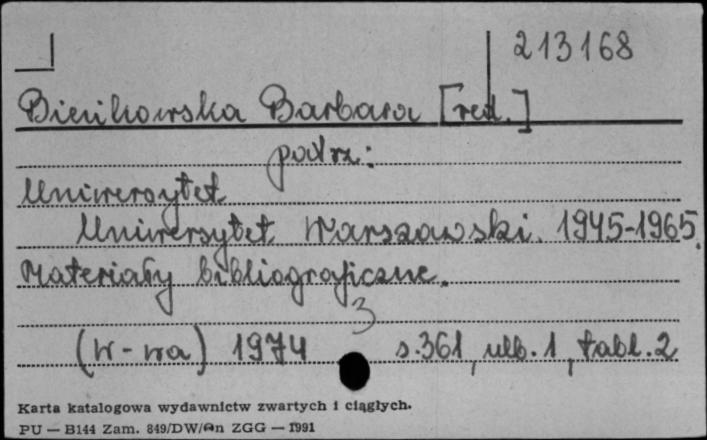 213168
Bieńkowska Barbara [red.]
patrz:
Uniwersytet
Uniwersytet Warszawski. 1945-1965.
Materiały bibliograficzne.
3
(W-wa) 1974 s.361, ulb.1, tabl.2
Karta katalogowa wydawnictw zwartych i ciągłych.
PU — B144 Zam. 849/DW/an ZGG — 1991